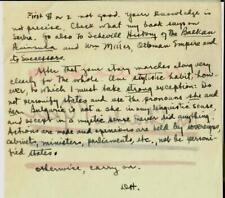 First # or 2 not good. Your knowledge is
not precise. Check what my book says on
Serbia. Go also to Schevill History of the Balkan
Peninsula and Wm Miller, Ottoman Empire and
its Successors.
After that your story marches along very
clearly for the whole. One stylistic habit, how-
ever, to which I must take strong exception: Do
not personify states and use the pronouns she and
her. Bulgaria is not a she in any linguistic sense,
and except in a mystic sense never did anything.
Actions are made and opinions are held by sovereigns,
cabinets, ministers, parliaments, etc., not be personi-
fied states.
Otherwise, carry on.